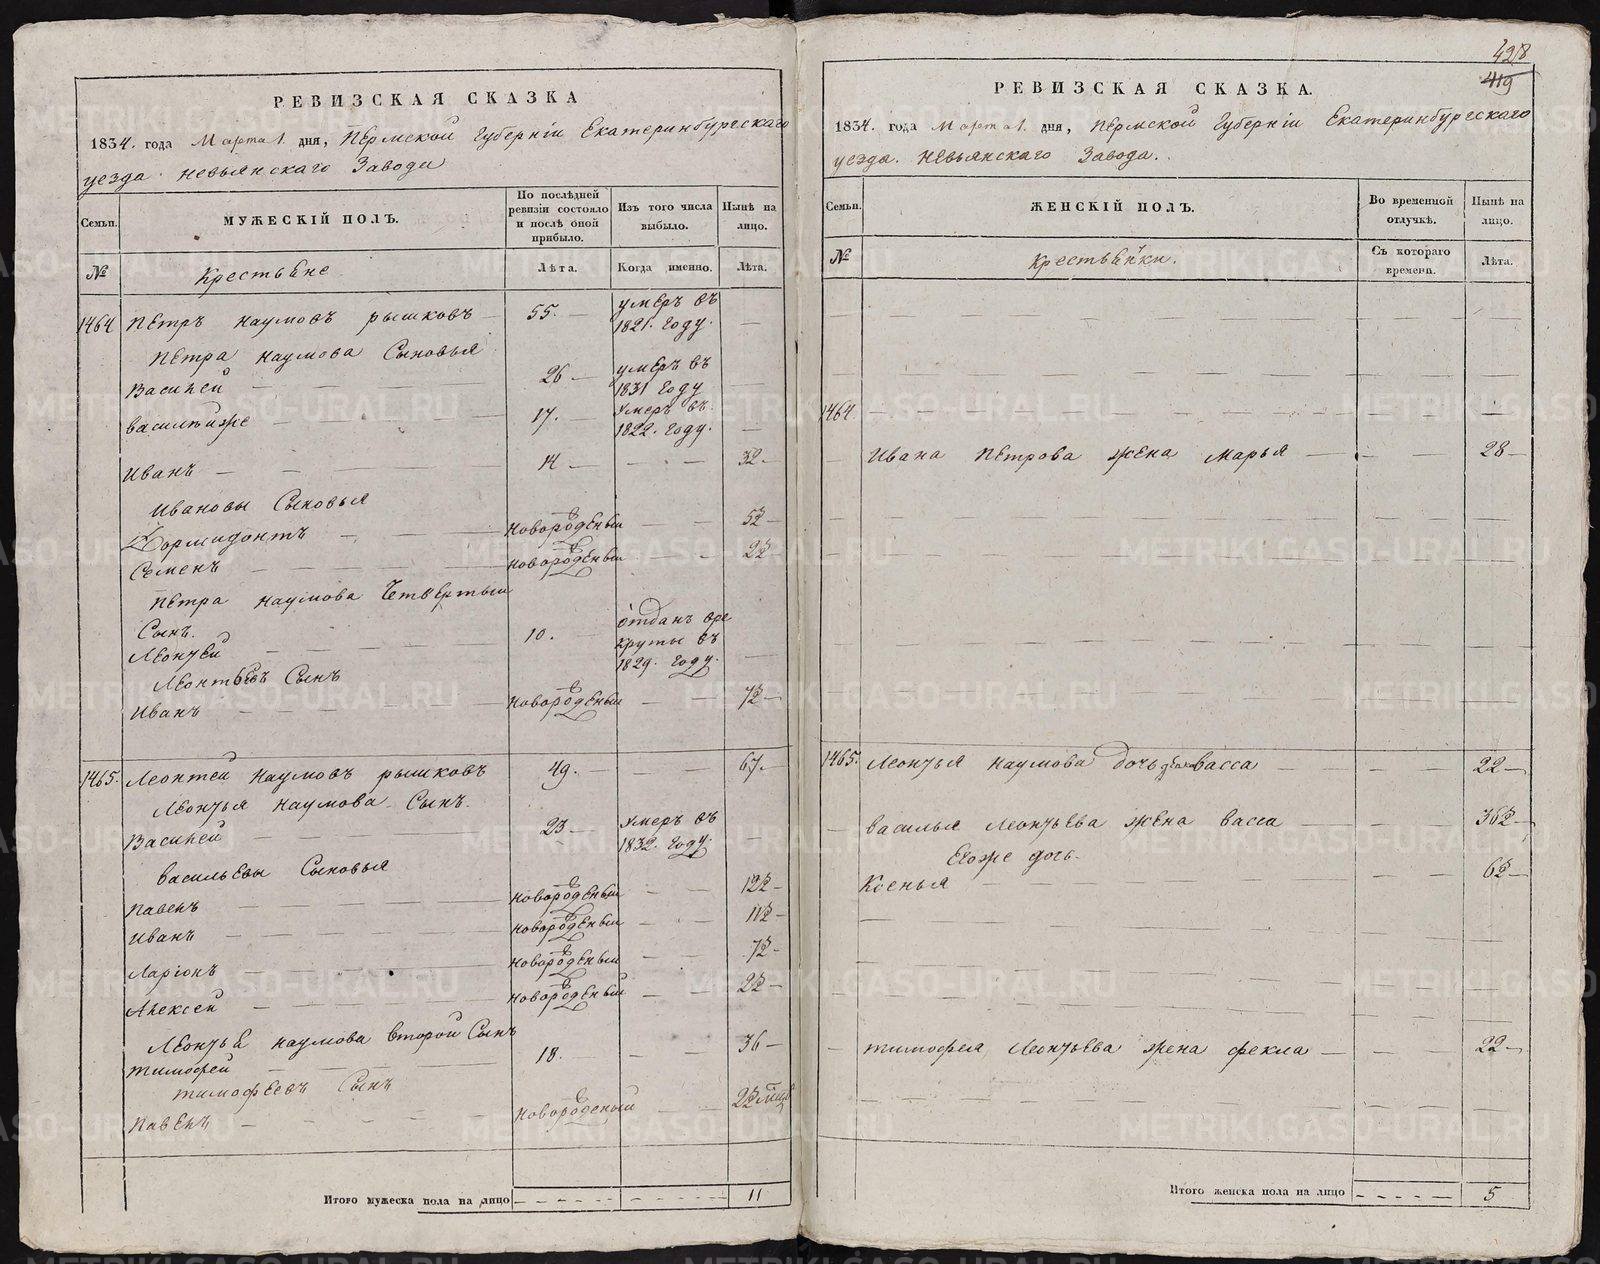 РЕВИЗСКАЯ СКАЗКА
1834. года Марта 1. дня, Пермской Губернiи Екатеринбургскаго
уезда Невьянскаго Завода
Семьи.
МУЖЕСКIЙ ПОЛЪ.
По послѣдней ревизiи состояло и послѣ оной прибыло.
Изъ того числа выбыло.
Нынѣ на лицо.
№
Крестьяне
Лѣта.
Когда именно.
Лѣта.
1464 Петръ Наумовъ Рышковъ 55. умеръ въ 1821. Году.
Петра Наумова Сыновья
Василей 26 умеръ въ 1831 Году
Василейже 17. Умеръ въ 1822. Году.
Иванъ 14 32
Ивановы Сыновья
Дормидонтъ новорожденный 5½
Семенъ новорожденный 2½
Петра Наумова Четвертый
Сынъ.
Леонтей 10. отданъ вре круты въ 1829. Году.
Леонтьевъ Сынъ
Иванъ новорожденный 7½
1465. Леонтей Наумовъ Рышковъ 49. 67
Леонтья Наумова Сынъ.
Василей 23 Умеръ въ 1832. Году.
Васильевы Сыновья
Павелъ новорожденный 12½
Иванъ новорожденный 11½
Ларiонъ новорожденный 7½
Алексей новорожденный 2½
Леонтья Наумова второй Сынъ
Тимофей 18. 36
Тимофеевъ Сынъ
Павелъ новорожденый
Итого мужеска пола на лицо 11
428
419
РЕВИЗСКАЯ СКАЗКА.
1834. года Марта 1. дня, Пермской Губернiи Екатеринбургскаго
уезда. Невьянскаго Завода.
Семьи.
ЖЕНСКIЙ ПОЛЪ.
Во временной отлучкѣ.
Нынѣ на лицо.
№
Крестьянки.
Съ котораго времени.
Лѣта.
1464
Ивана Петрова жена Марья 28
1465. Леонтья Наумова дочь Васса 22
Василья Леонтьева жена Васса 36½
Егоже дочь.
Ксенья 6½
Тимофея Леонтьева жена Фекла 22
Итого женска пола на лицо 5
METRIKI.GASO-URAL.RU